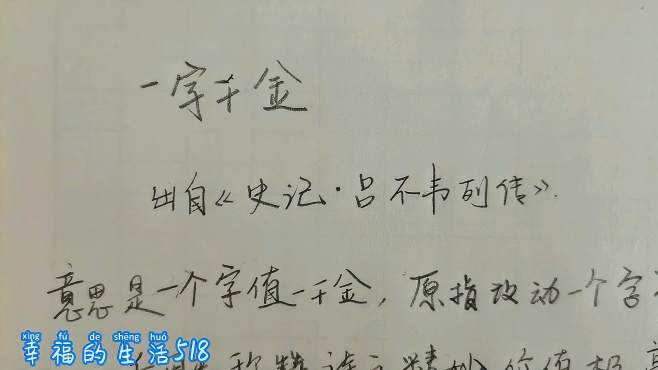 一字千金
出自《史记·吕不韦列传》.
意思是一个字值一千金,原指改动一个字
称赞诗文精妙价值极高
xìng fú de shēng huó
幸福的生活518